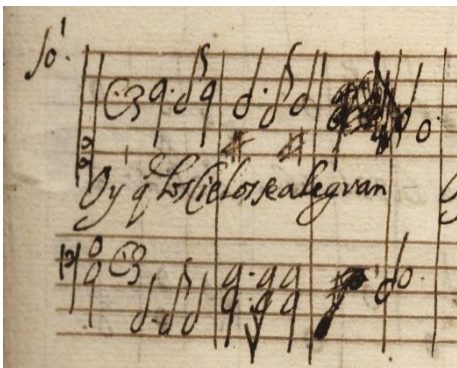 So̍.
Oy q̃ los Cielos se alegran